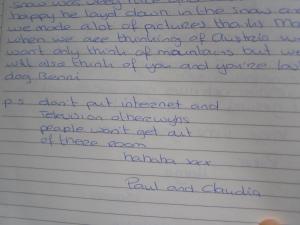 snow was very
happy he layd down in the snow and
we made alot of pictures thanks
when we are thinking of Austria we
don't only think of mountains but we
will also think of you and you're
dog Benni
p.s don't put internet and
Television otherwyhs
people won't get out
of there room
hahaha xxx
Paul and Claudia